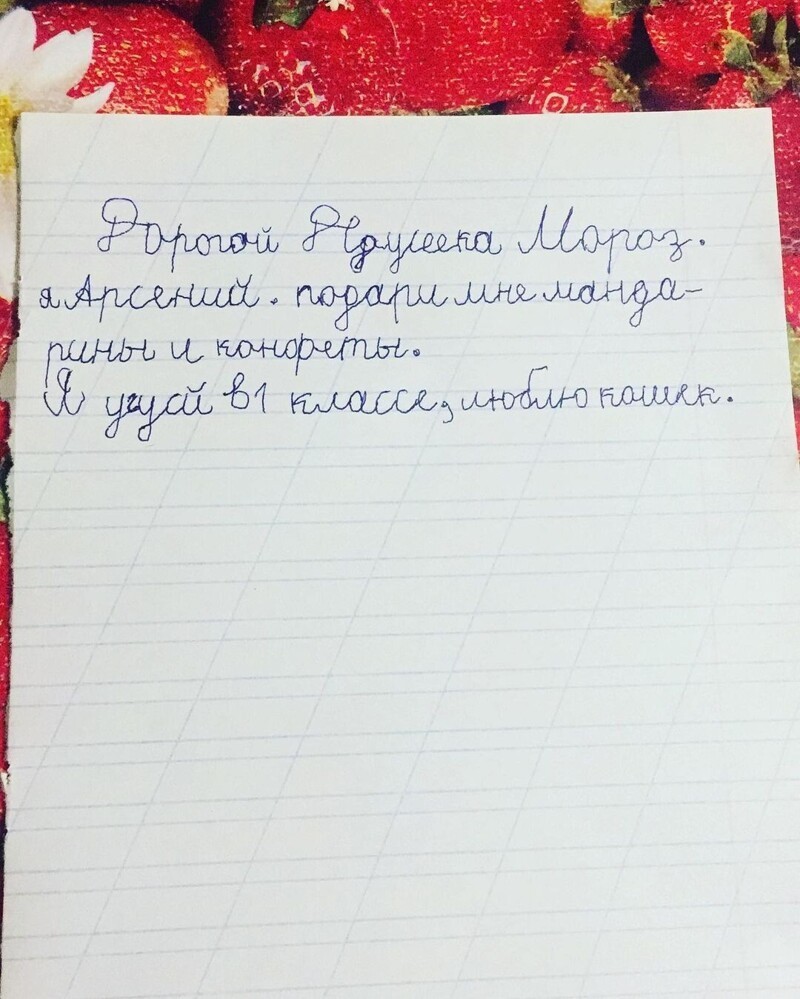 Дорогой Ндушека Мороз.
я Арсений. подари мне манда-
рины и конфреты.
Я учусй в 1 классе, люблю кошек.